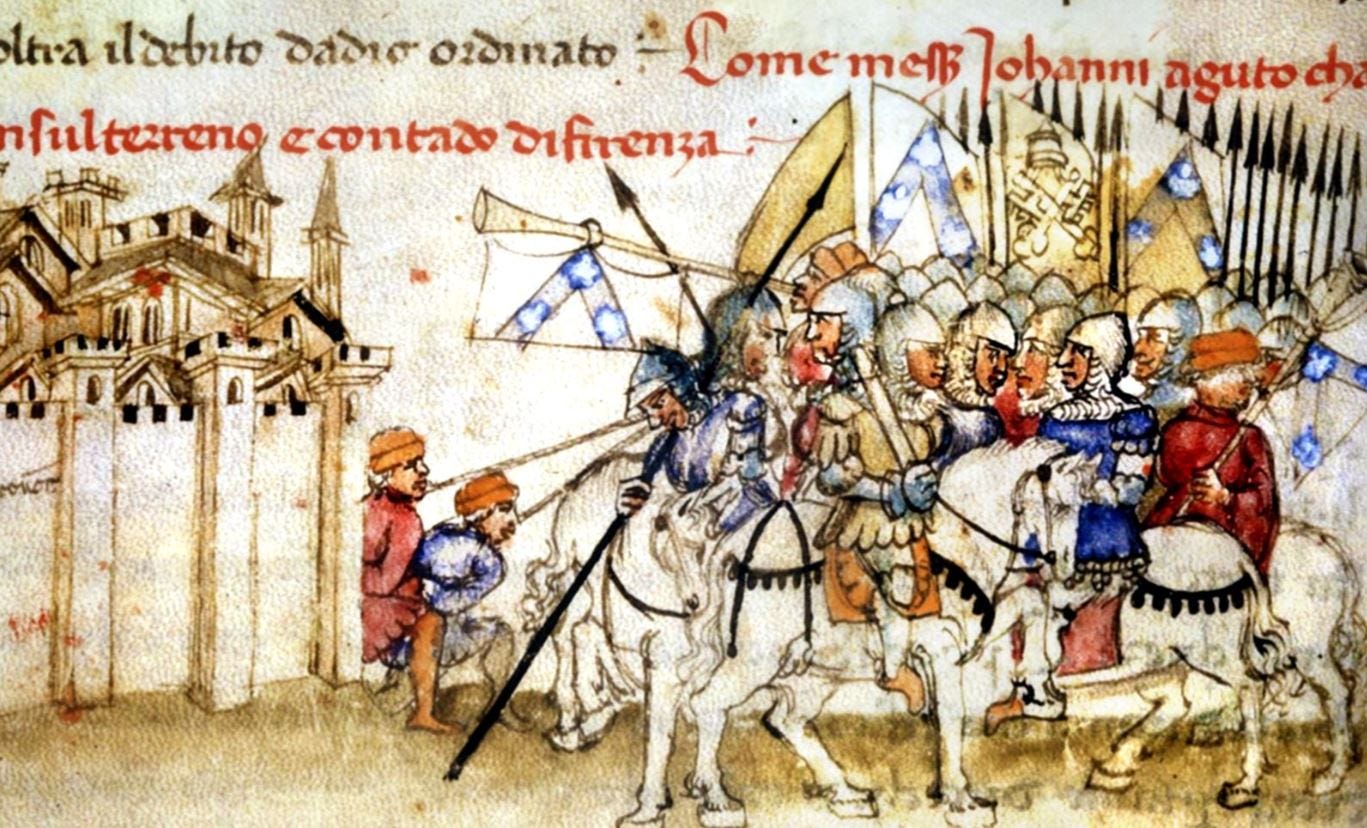 oltra il debito dadio ordinato Come mess Johanni aguto cha
nsul terreno e contado di firenza